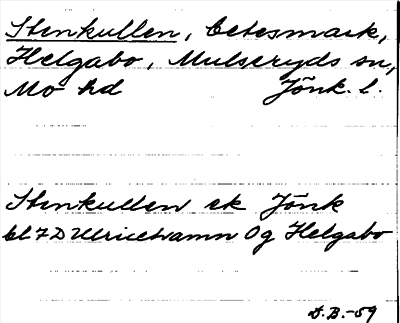 Stenkullen, betesmark,
Helgabo, Mulseryds sn,
Mo hd Jönk. l.
Stenkullen ek Jönk
bl 7D Ulricehamn Og Helgabo
D.B.-59